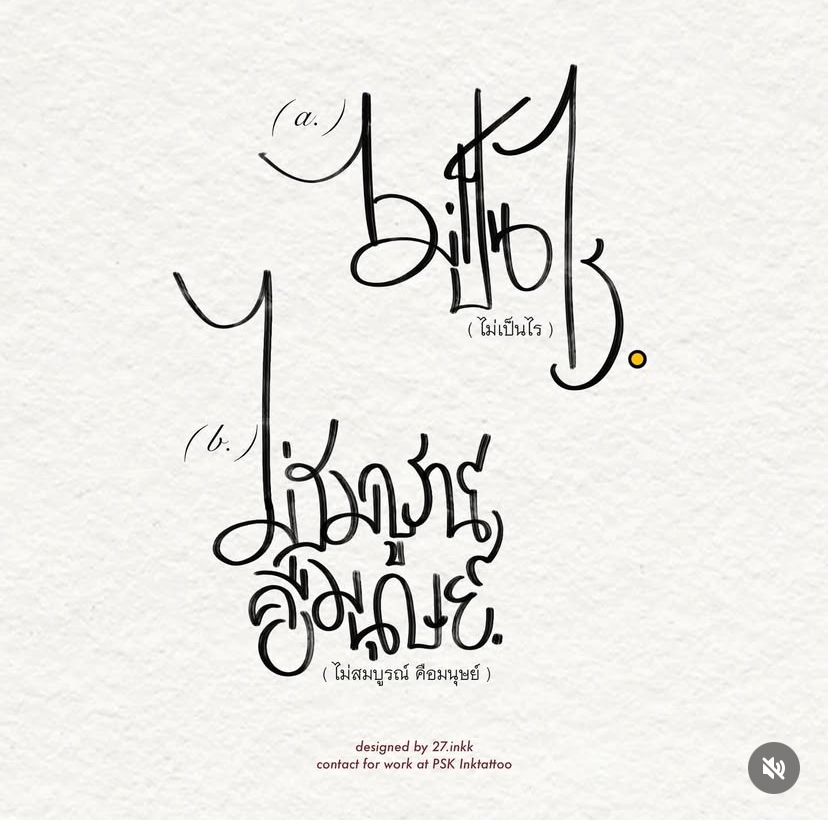 (a.)
ไม่เป็นไร.
(ไม่เป็นไร)
(b.)
ไม่สมบูรณ์
คือมนุษย์.
(ไม่สมบูรณ์ คือมนุษย์)
designed by 27.inkk
contact for work at PSK Inktattoo